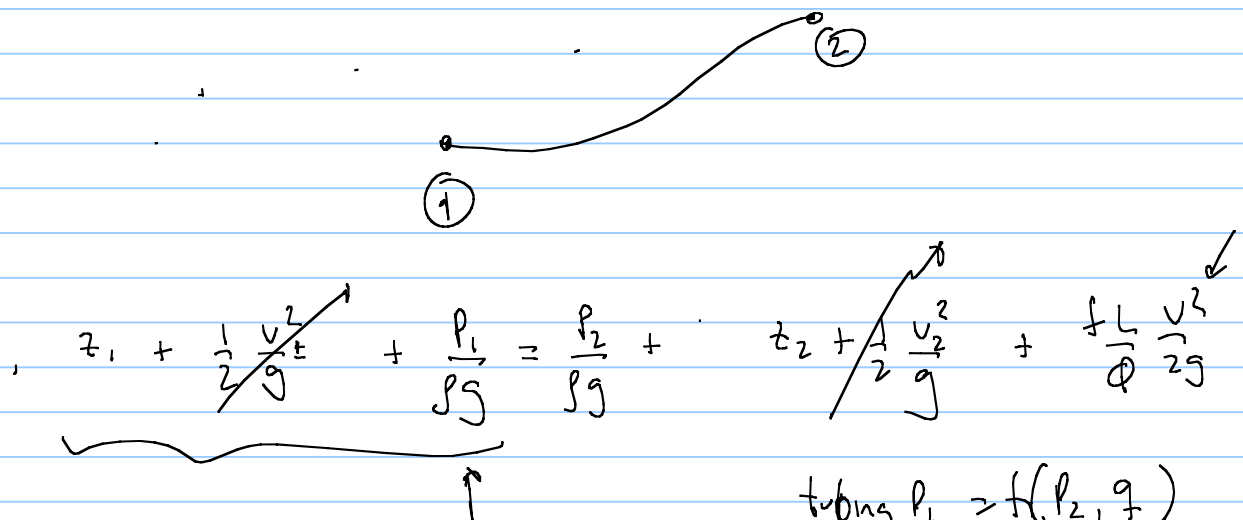 ②
①
z₁ + 1/2 v²/g + P₁/ρg = P₂/ρg + z₂ + 1/2 v₂²/g + fL/Φ v²/2g
tubing P₁ = f(P₂, q)